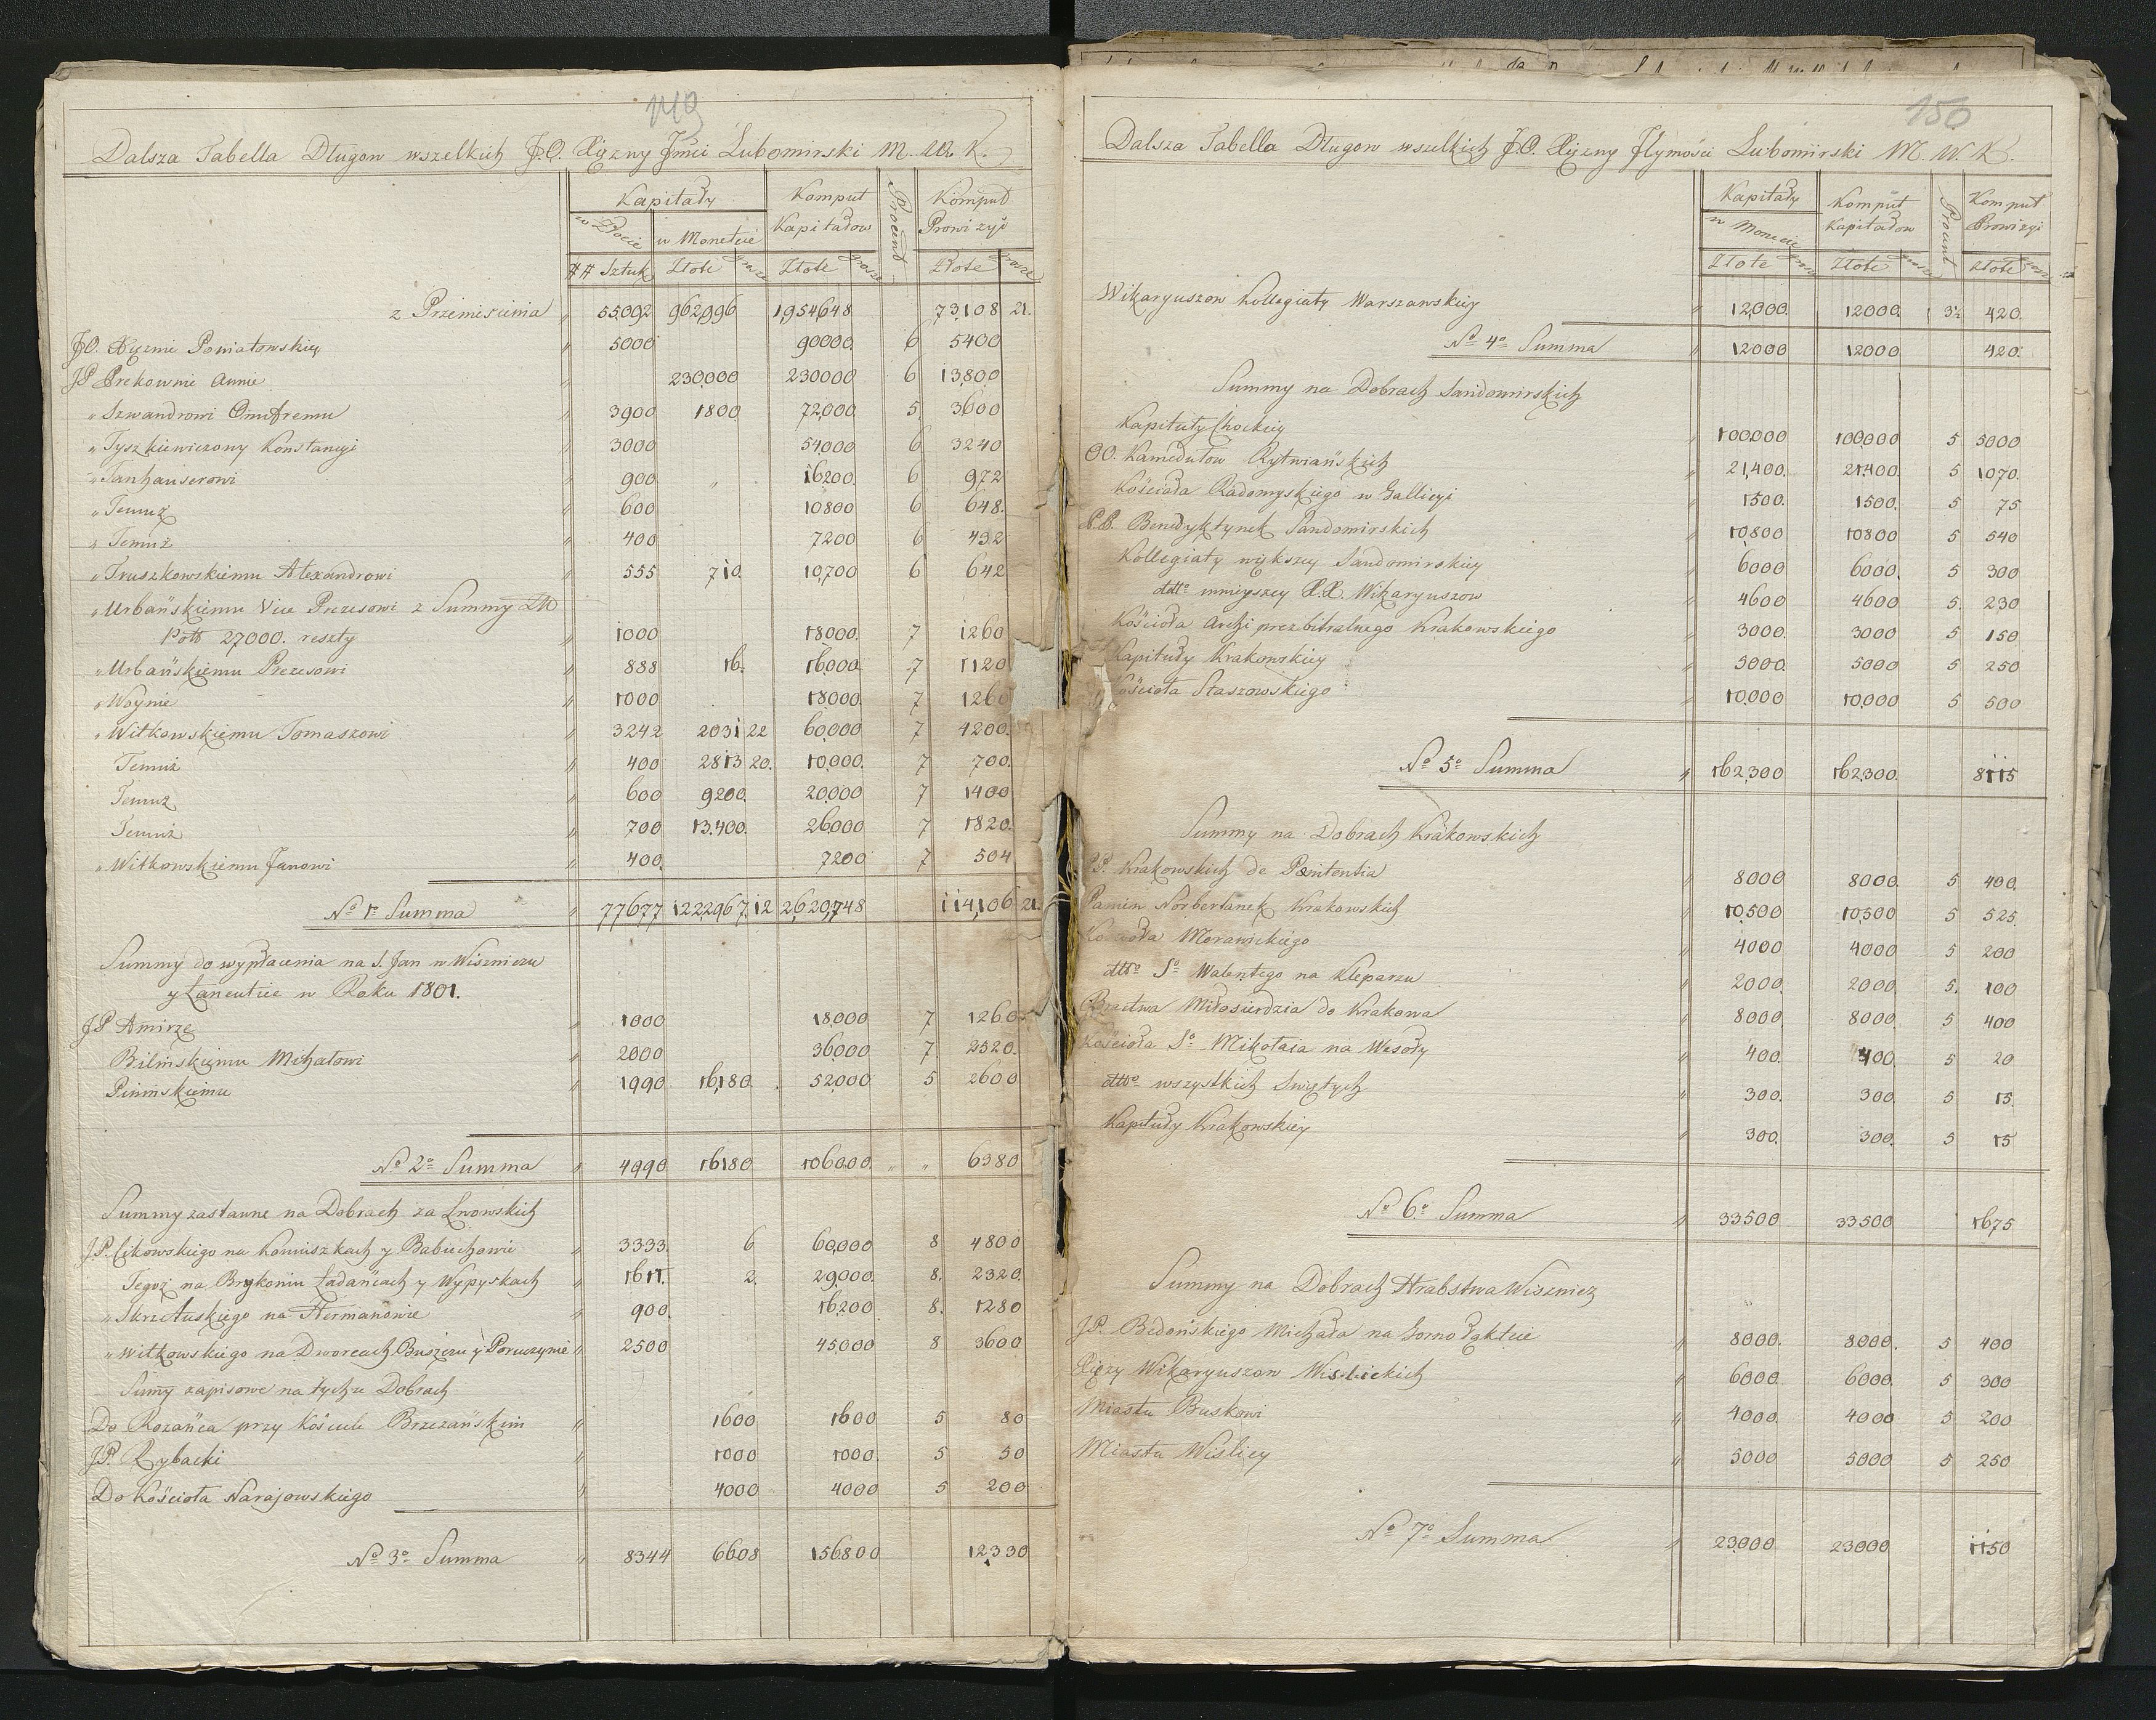 149
Dalsza Tabella Długow wszelkich J.O. Xiężny Jmci Lubomirski M. W. K.
Kapitały Komput Procent Komput
w Złocie w Monecie Kapitałow Prowizyi
## Sztuk Złote grosze Złote grosze Złote grosze
z Przeniesienia " 55,092 962,996 1,954648 73,108 21.
JO. Xiężnie Poniatowskiey " 5000 90000 6 5400
JP Annie " 230,000 230000 6 13,800
" Szwandrowi Onufremu " 3900 1800 72,000 5 3600
" Tyszkiewiczowy Konstancyi " 3000 54,000 6 3240
" Tanhauserowi 900 " 16200. 6 972
" Temuż " 600 10800 6 648.
" Temuż " 400 7200 6 432
" Truszkowskiemu Alexandrowi " 555 710. 10,700 6 642
" Urbańskiemu Vice Prezesowi z Summy
27000. reszty " 1000 18000. 7 1260
" Urbańskiemu Prezesowi " 888 16. 16,000. 7 1120
" Woynie " 1000 18,000. 7 1260
" Witkowskiemu Tomaszowi " 3242 2031 22 60,000 7 4200.
Temuż " 400 2813 20. 10,000. 7 700.
Temuż " 600 9200. 20,000 7 1400
Temuż " 700 13.400. 26,000 7 1820.
" Witkowskiemu Janowi " 400. 7200 7 504
No 1o Summa " 77677 1222967.12 2,620,748 114,106 21.
Summy do wypłacenia na S. Jan w Wiszniczu
y Łancutcie w Roku 1801.
JP Amirze " 1000 18,000 7 1260
Bilinskiemu Michałowi " 2000 36,000 7. 2520.
Pininskiemu " 1990. 16,180. 52,000 5 2600
No 2o Summa " 4990 16180 106000. " " 6380
Summy zastawne na Dobrach za Lwowskich
JP. Cikowskiego na Koniuszkach y Babuchowie " 3333. 6 60,000 8 4800
Tegoż na Brykoniu Ładańcach y Wypyskach " 1611. 2. 29,000. 8. 2320.
" Skrzetuskiego na Hermanowie " 900. 16,200 8. 1280
" Witkowskiego na Dworcach Buszczu y Poruczynie " 2500 45,000 8 3600
Summy zapisowe na tychże Dobrach
Do Rozańca przy Kościele Brzezańskim " 1600 1600 5 80
JP. Rybacki " 1000 1000. 5 50
Do Kościoła Narajowskiego " 4000 4000 5 200
No 3o Summa " 8344 6608 156800 12,330
150
Dalsza Tabella Długow wszelkich J.O. Xiężny Jeymości Lubomirski M. W. K.
Kapitały Komput Procent Komput
w Monecie Kapitałow Prowizyi
Złote grosze Złote grosze Złote grosze
Wikaryuszow Kollegiaty Warszawskiey " 12,000. 12000. 3½ 420.
No 4o Summa " 12000 12000 420.
Summy na Dobrach Sandomirskich
Kapituły Chockiey " 100,000 100,000 5 5000
OO. Kamedułow Rytwiańskich " 21,400. 21,400. 5 1070.
Kościoła Radomyskiego w Gallicyi " 1500. 1500. 5 75
P.P. Benedyktynek Sandomirskich " 10,800 10800 5 540
Kollegiaty większey Sandomirskiey " 6000 6000. 5 300
ditto mnieyszey X.X. Wikaryuszow " 4600 4600 5. 230
Kościoła Archiprezbitralnego Krakowskiego " 3000. 3000 5 150
Kapituły Krakowskiey " 5000. 5000 5 250
Kościoła Staszowskiego " 10,000 10,000 5 500
No 5o Summa " 162,300 162,300. 8115
Summy na Dobrach Krakowskich
PP. Krakowskich de Pænitentia " 8000 8000. 5 400.
Pannien Norbertanek Krakowskich " 10,500 10,500 5 525.
Kościoła Morawickiego " 4000 4000 5 200
ditto So Walentego na Kleparzu " 2000. 2000. 5. 100
Bractwa Miłosierdzia do Krakowa " 8000. 8000. 5 400
Kościoła So Mikołaia na Wesoły " 400. 400. 5 20
ditto wszystkich Swiętych " 300. 300. 5 15.
Kapituły Krakowskiey " 300. 300. 5 15
No 6o Summa " 33500 33500 1675
Summy na Dobrach Hrabstwa Wisznicz
JP. Bedońskiego Michała na Gorno Łąktcie " 8000. 8000. 5 400
Xięży Wikaryuszow Wislickich " 6000. 6000. 5 300
Miastu Buskowi " 4000. 4000 5 200
Miastu Wiślicy " 5000 5000 5 250
No 7o Summa " 23,000 23000 1150